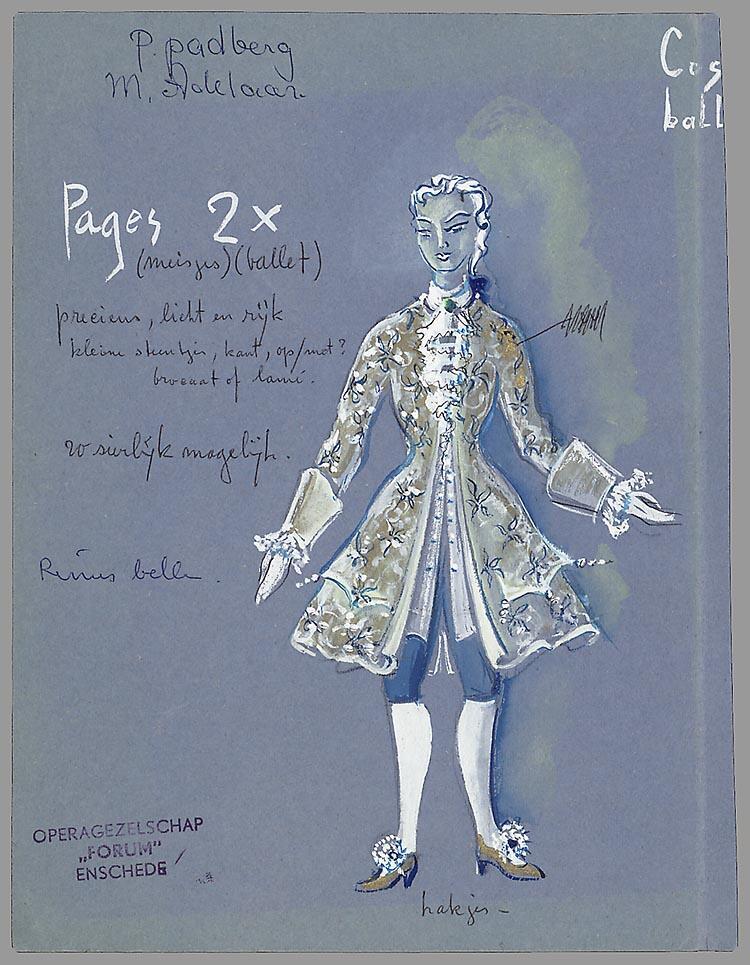 P. padberg
M. Adelaar
Cos
ball
Pages 2x
(meisjes) (ballet)
precieus, licht en rijk
kleine steentjes, kant, op/met?
brocaat of lamé.
zo sierlijk mogelijk.
belle
OPERAGEZELSCHAP
„FORUM”
ENSCHEDE
hakjes -